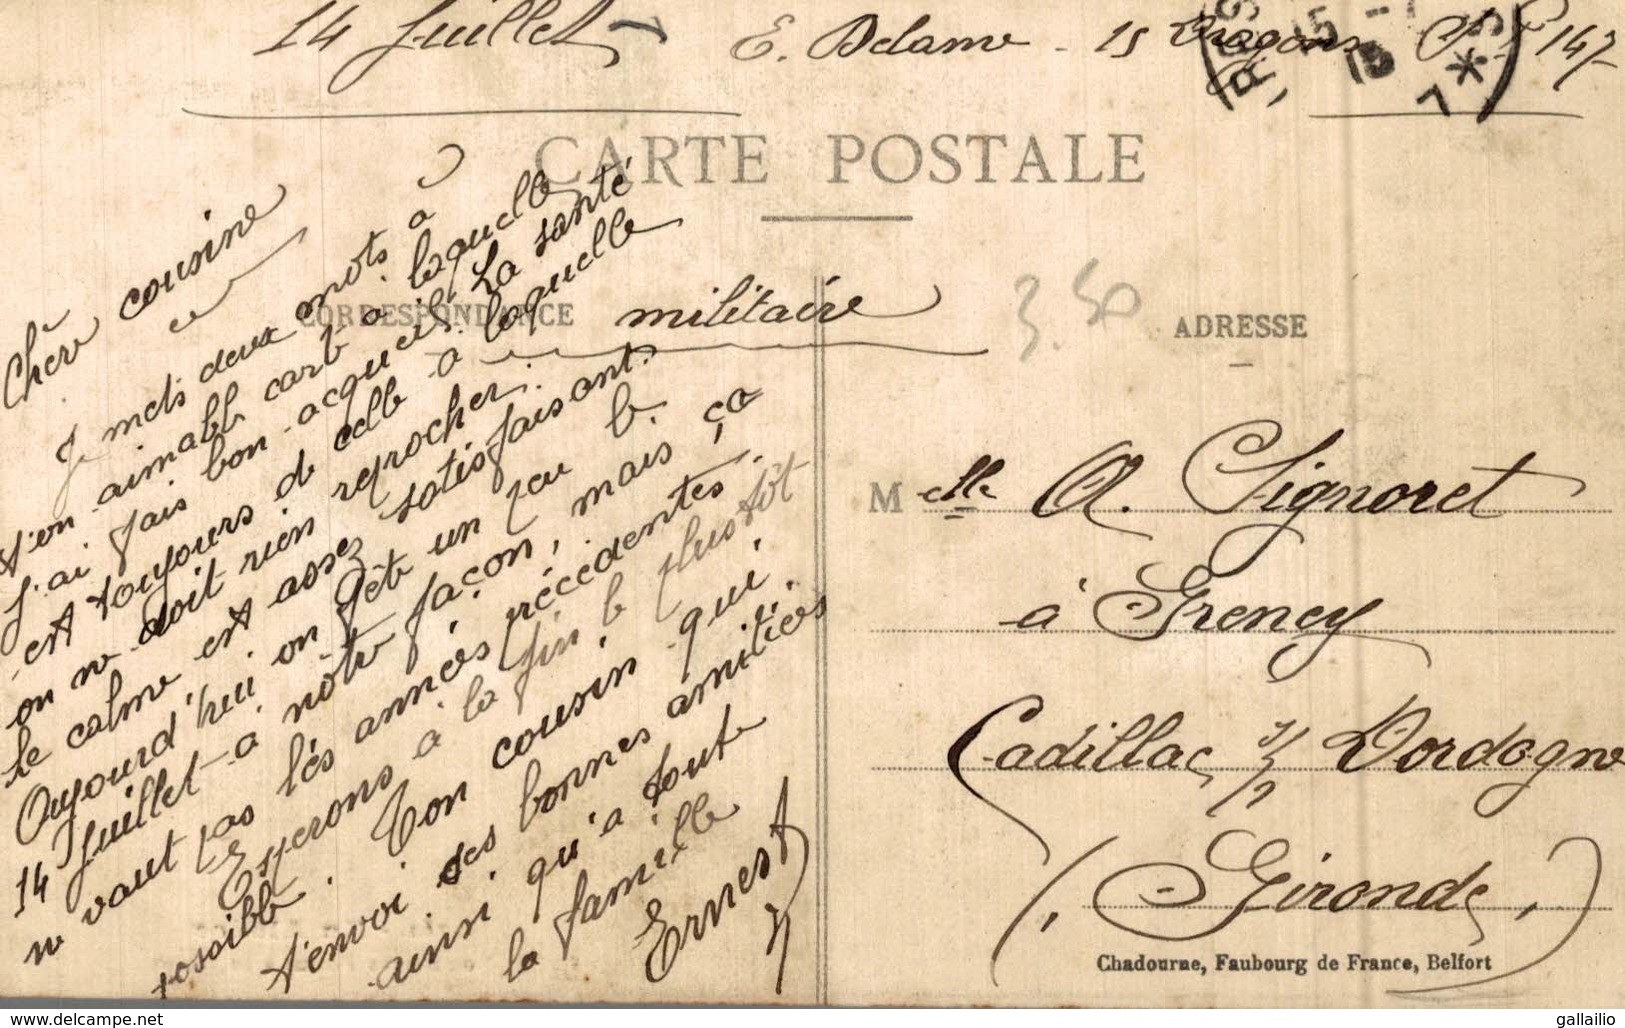 14 Juillet
E. Delame - 15 Dragons S. P. 147
CARTE POSTALE
CORRESPONDANCE militaire
Chère cousine
Je mets deux mots à
ton aimable carte à laquelle
j'ai fais bon acqueil. La santé
est toujours de celle à laquelle
on ne doit rien reprocher.
le calme est assez satisfaisant.
Aujourd'hui on fête un peu le
14 Juillet à notre façon, mais ça
ne vaut pas les années précédentes.
Espérons à la fin le plus tôt
possible. Ton cousin qui
t'envoi ses bonnes amitiées
ainsi qu'à toute
la famille
Ernest
3.50
ADRESSE
Melle A. Signoret
à Grency
Cadillac s/ Dordogne
(Gironde)
Chadourne, Faubourg de France, Belfort
Delcampe.net
gallailio